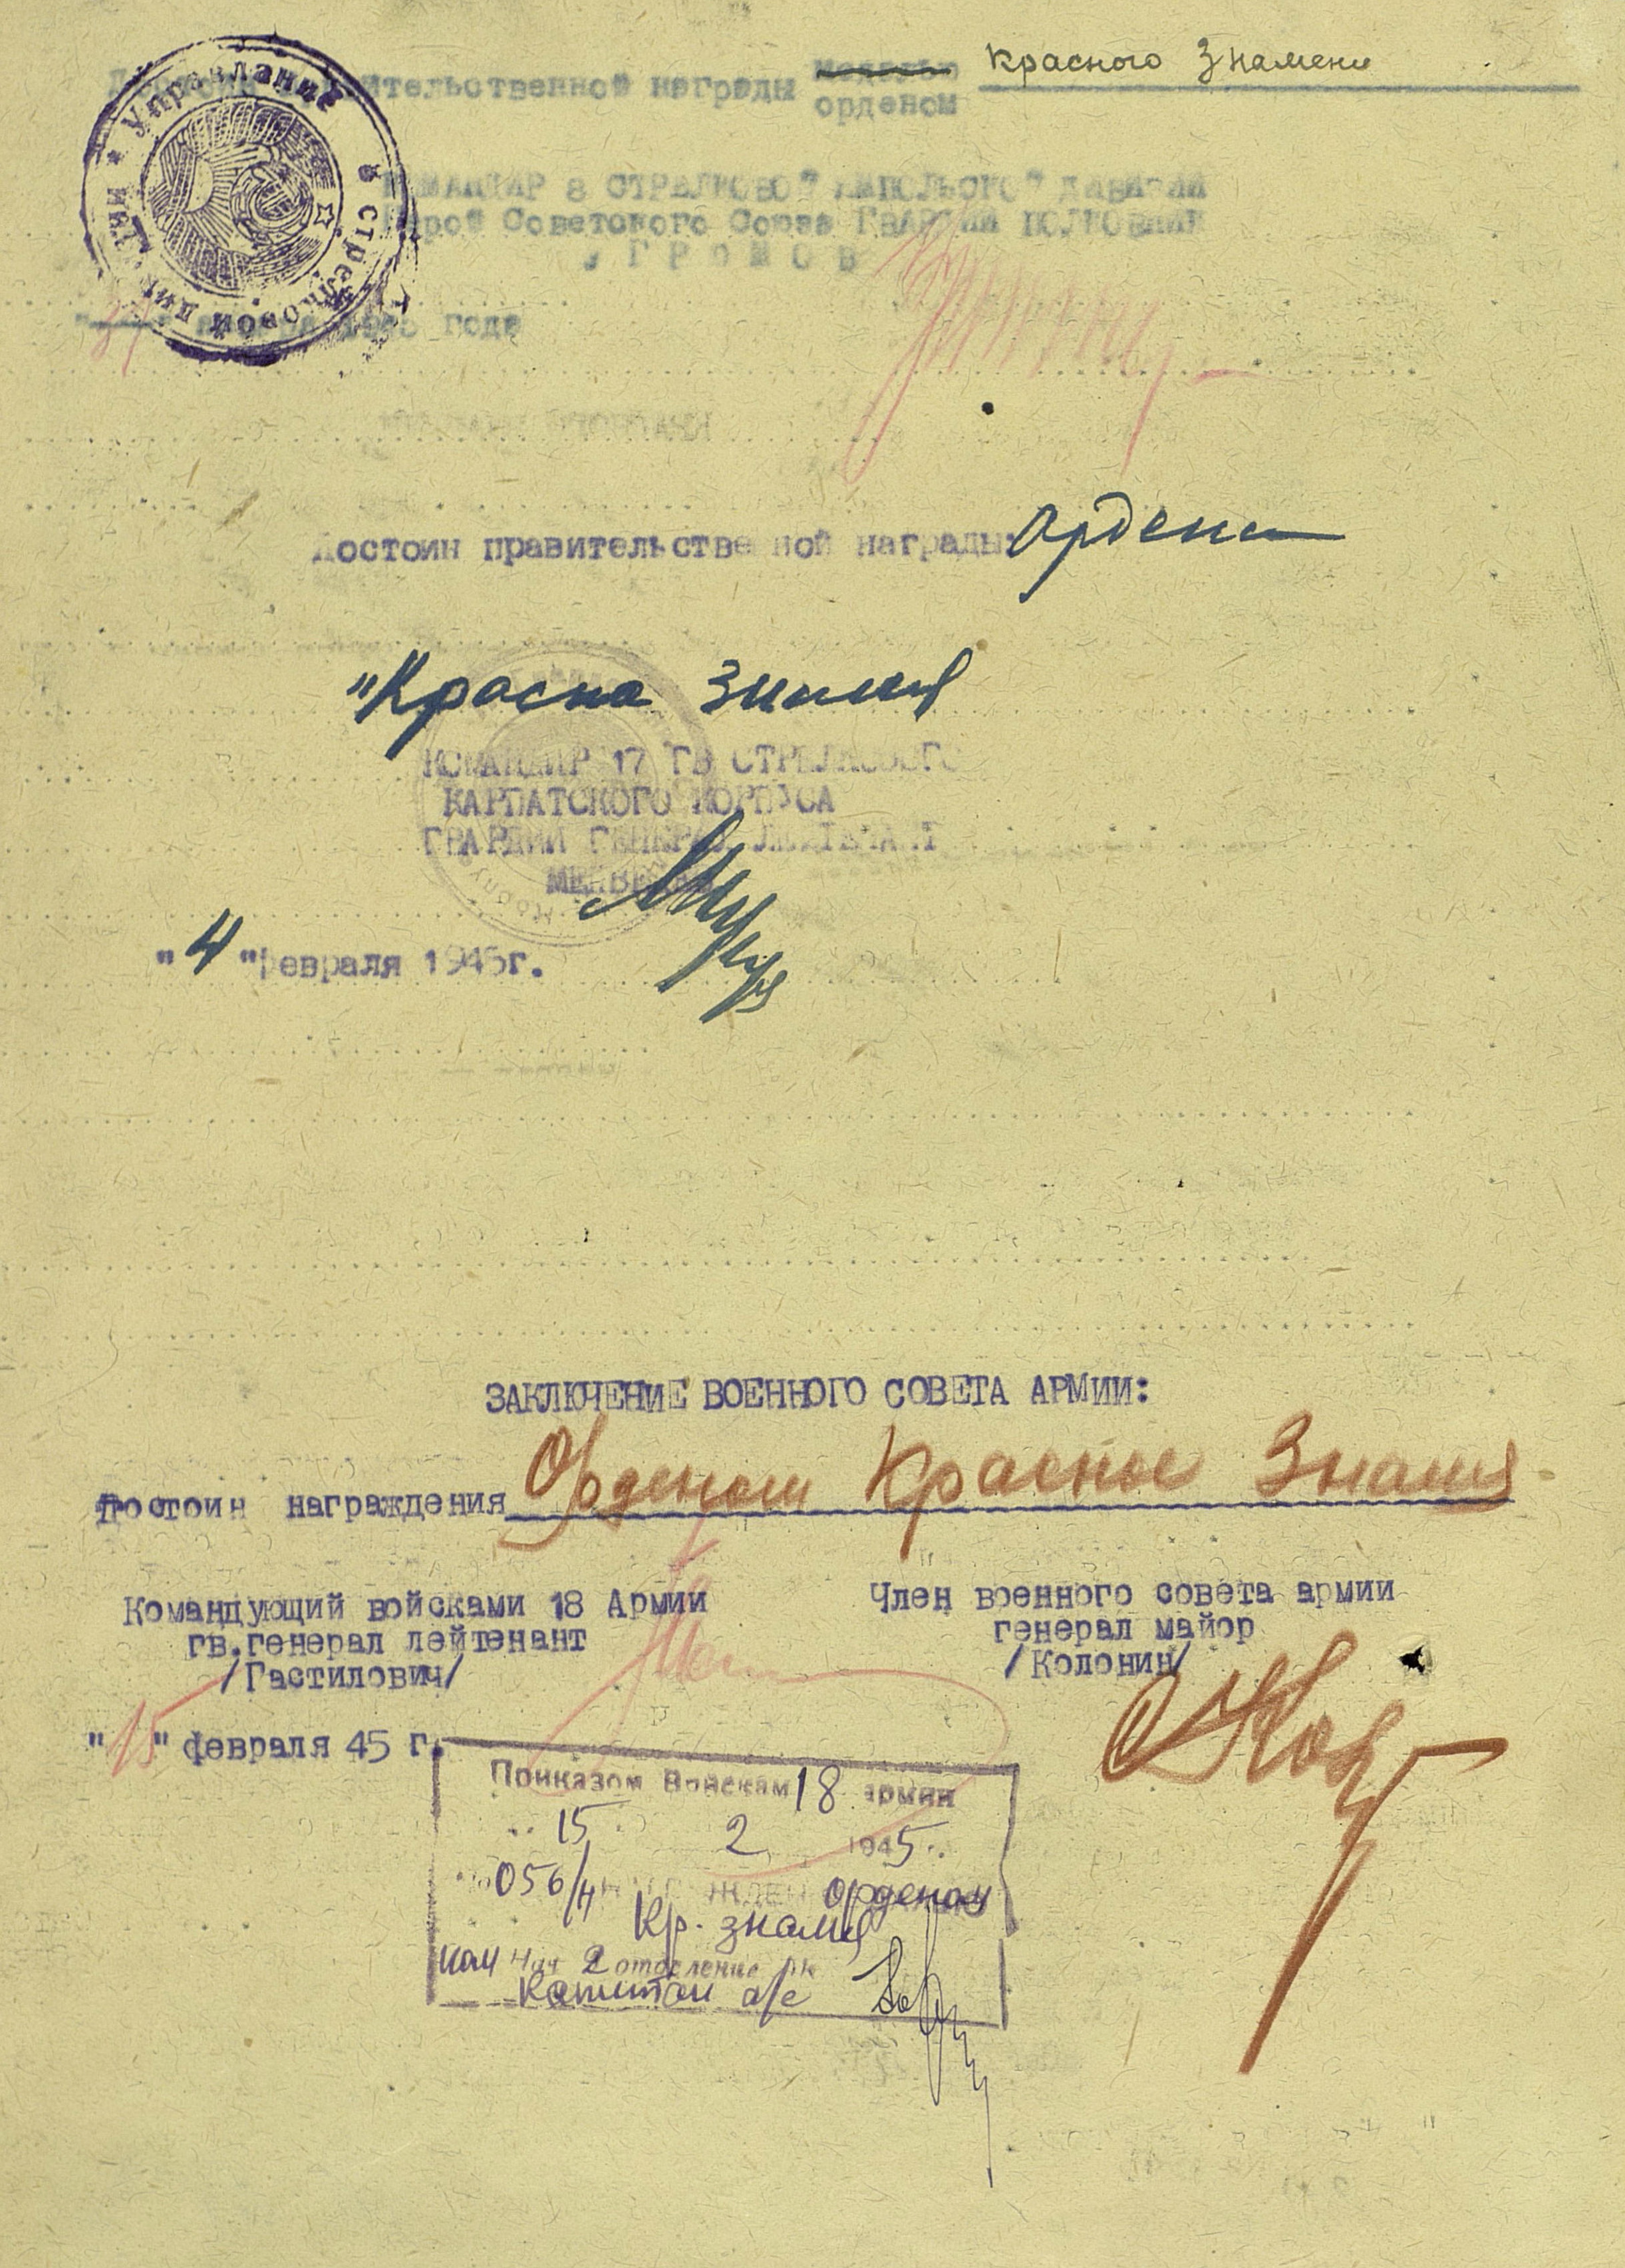 Достоин правительственной награды медалью Красного Знамени
орденом
Управление 8 стрелковой дивизии
КОМАНДИР 8 СТРЕЛКОВОЙ ЯМПОЛЬСКОЙ ДИВИЗИИ
Герой Советского Союза ГВАРДИИ ПОЛКОВНИК
УГРОМОВ
1945 года
Достоин правительственной награды: Ордена
"Красна Знамя
КОМАНДИР 17 ГВ СТРЕЛКОВОГО
КАРПАТСКОГО КОРПУСА
ГВАРДИИ ГЕНЕРАЛ ЛЕЙТЕНАНТ
МЕДВЕДЕВ
"4" февраля 1945г.
ЗАКЛЮЧЕНИЕ ВОЕННОГО СОВЕТА АРМИИ:
Достоин награждения Орденом Красное Знамя
Командующий войсками 18 Армии
гв.генерал лейтенант
/Гастилович/
Член военного совета армии
генерал майор
/Колонин/
"15" февраля 45 г.
Приказом Войскам 18 армии
15 2 1945
056/н НАГРАЖДЕН орденом
Кр. знамя
Нач 2 отделение ОК
Капитан а/с